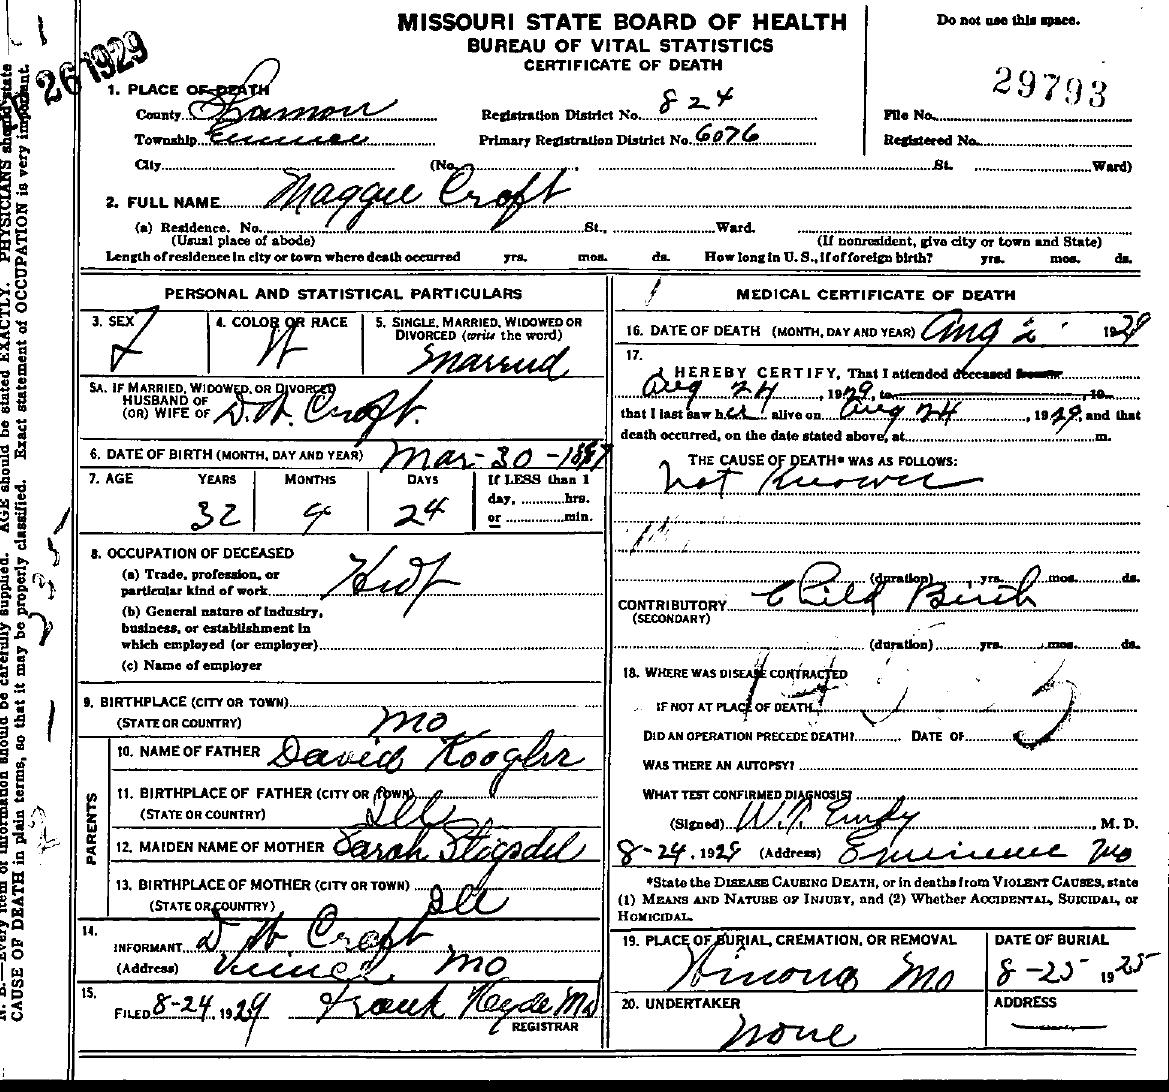 MISSOURI STATE BOARD OF HEALTH
BUREAU OF VITAL STATISTICS
CERTIFICATE OF DEATH
Do not use this space.
26 1929
29793
1. PLACE OF DEATH
County Shannon Registration District No. 824 File No.
Township Eminence Primary Registration District No. 6076 Registered No.
City (No. St. Ward)
2. FULL NAME Maggie Croft
(a) Residence. No. St., Ward.
(Usual place of abode) (If nonresident, give city or town and State)
Length of residence in city or town where death occurred yrs. mos. ds. How long in U. S., if of foreign birth? yrs. mos. ds.
PERSONAL AND STATISTICAL PARTICULARS
3. SEX F
4. COLOR OR RACE W
5. SINGLE, MARRIED, WIDOWED OR DIVORCED (write the word) Married
5A. IF MARRIED, WIDOWED, OR DIVORCED
HUSBAND OF
(OR) WIFE OF D. W. Croft.
6. DATE OF BIRTH (MONTH, DAY AND YEAR) Mar-30-1897
7. AGE YEARS MONTHS DAYS If LESS than 1
day, hrs.
or min.
32 4 24
8. OCCUPATION OF DECEASED
(a) Trade, profession, or
particular kind of work Hwf
(b) General nature of industry,
business, or establishment in
which employed (or employer)
(c) Name of employer
9. BIRTHPLACE (CITY OR TOWN)
(STATE OR COUNTRY) Mo
PARENTS
10. NAME OF FATHER David Koogler
11. BIRTHPLACE OF FATHER (CITY OR TOWN)
(STATE OR COUNTRY) Ill
12. MAIDEN NAME OF MOTHER Sarah Stogsdel
13. BIRTHPLACE OF MOTHER (CITY OR TOWN)
(STATE OR COUNTRY) Ill
14.
INFORMANT D W Croft
(Address) Mo
15.
FILED 8-24, 1929 Frank Hyde MD
REGISTRAR
MEDICAL CERTIFICATE OF DEATH
16. DATE OF DEATH (MONTH, DAY AND YEAR) Aug 2 1929
17.
I HEREBY CERTIFY, That I attended deceased from
Aug 24, 1929, to , 19
that I last saw her alive on Aug 24, 1929, and that
death occurred, on the date stated above, at m.
THE CAUSE OF DEATH* WAS AS FOLLOWS:
Not Known
(duration) yrs. mos. ds.
CONTRIBUTORY Child Birth
(SECONDARY)
(duration) yrs. mos. ds.
18. WHERE WAS DISEASE CONTRACTED
IF NOT AT PLACE OF DEATH
DID AN OPERATION PRECEDE DEATH? DATE OF
WAS THERE AN AUTOPSY?
WHAT TEST CONFIRMED DIAGNOSIS?
(Signed) , M. D.
8-24, 1929 (Address) Eminence Mo
*State the DISEASE CAUSING DEATH, or in deaths from VIOLENT CAUSES, state
(1) MEANS AND NATURE OF INJURY, and (2) Whether ACCIDENTAL, SUICIDAL, or
HOMICIDAL.
19. PLACE OF BURIAL, CREMATION, OR REMOVAL DATE OF BURIAL
Winona Mo 8-25 1925
20. UNDERTAKER ADDRESS
None
N. B.—Every item of information should be carefully supplied. AGE should be stated EXACTLY. PHYSICIANS should state
CAUSE OF DEATH in plain terms, so that it may be properly classified. Exact statement of OCCUPATION is very important.